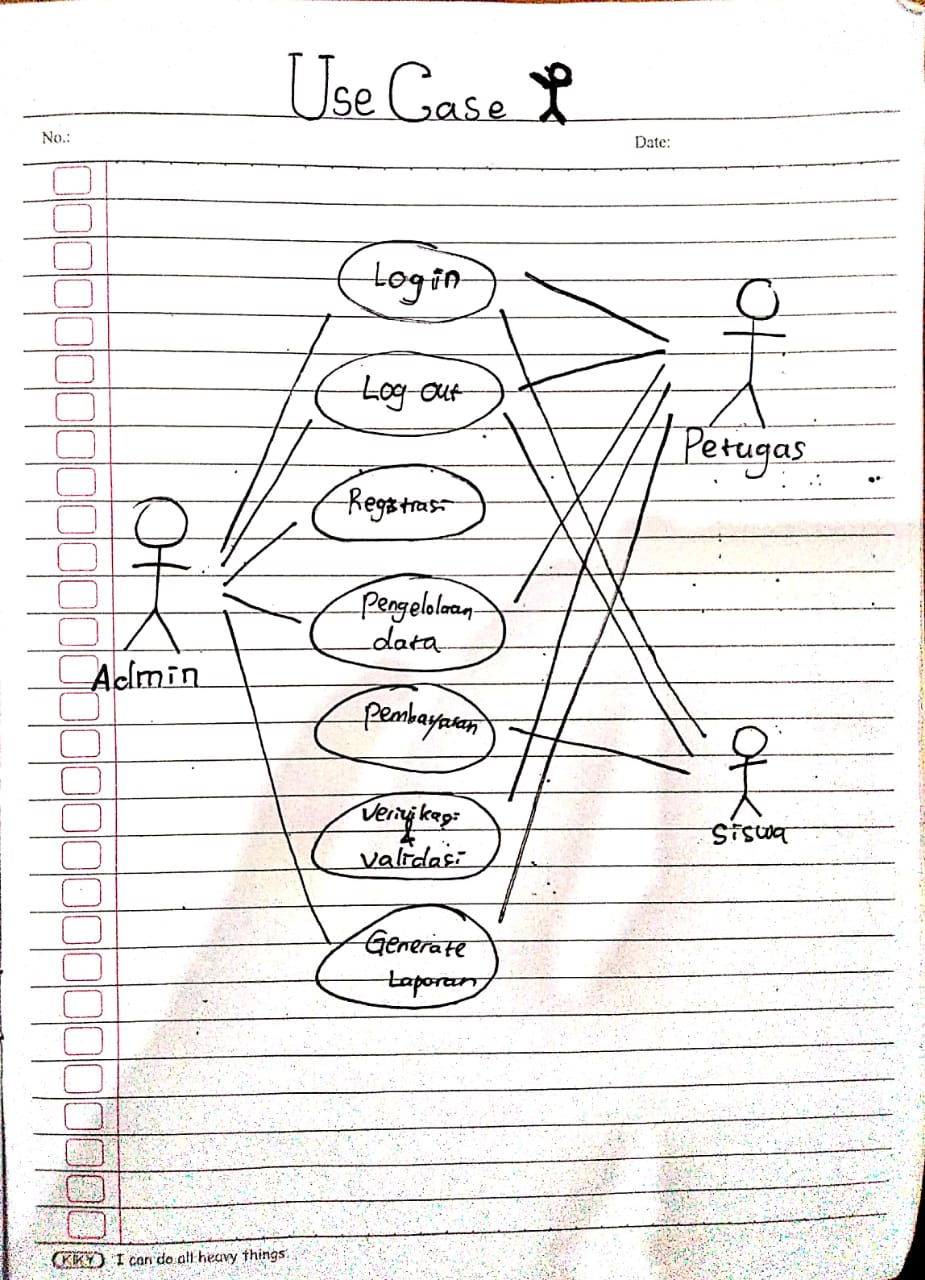 Use Case
No.:
Date:
Login
Log out
Registrasi
Pengelolaan
data
Pembayaran
Verifikasi
&
validasi
Generate
Laporan
Admin
Petugas
Siswa
KKY I can do all heavy things